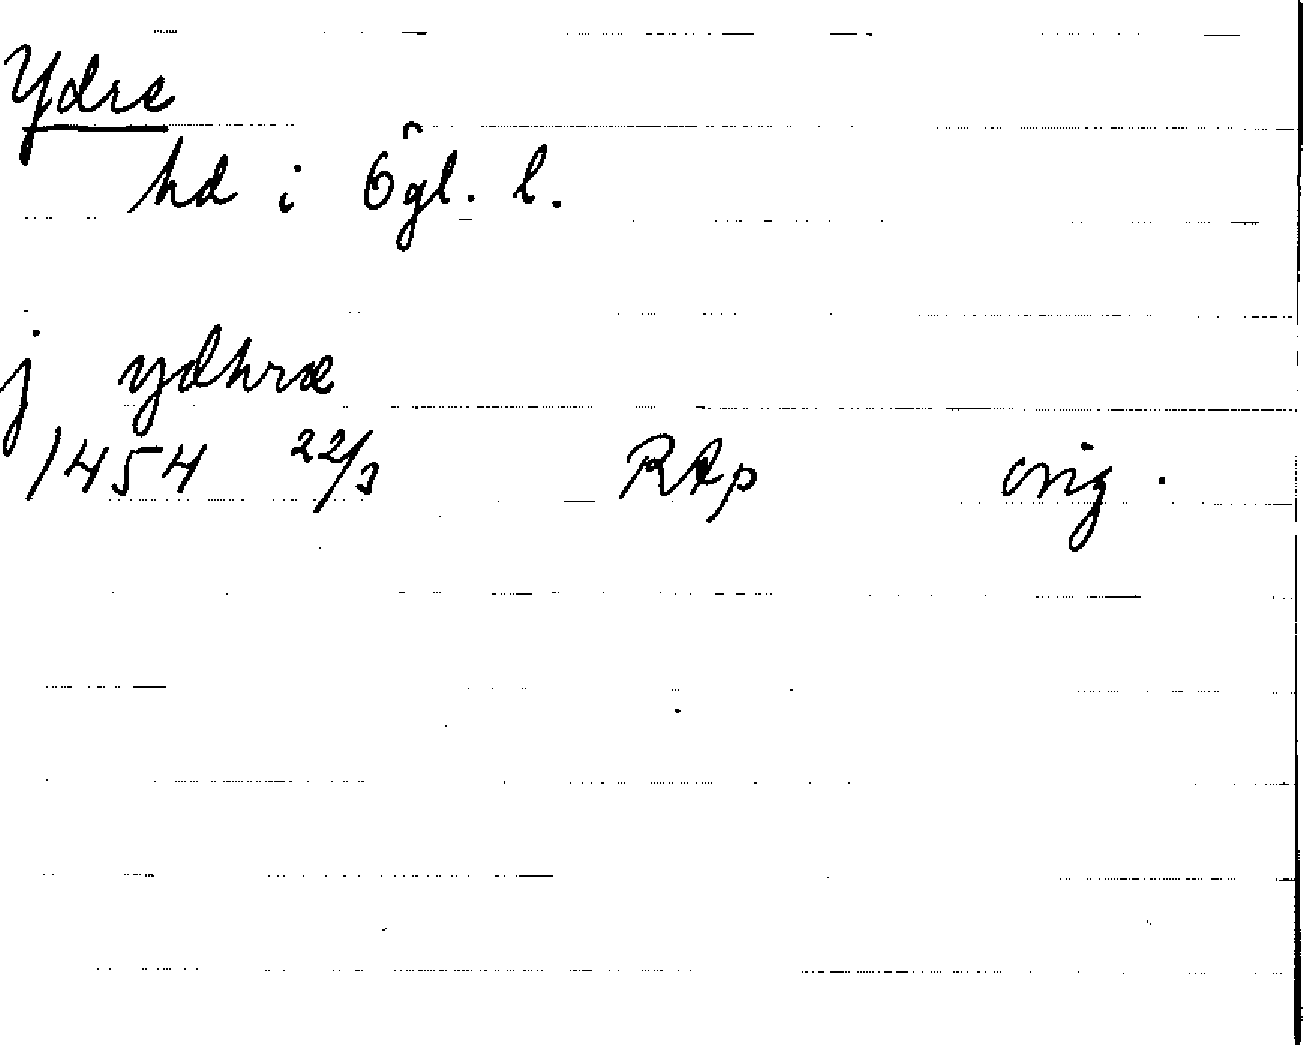 Ydre
hd i Ögl. l.
j ydhræ
1454 22/3 RAp orig.